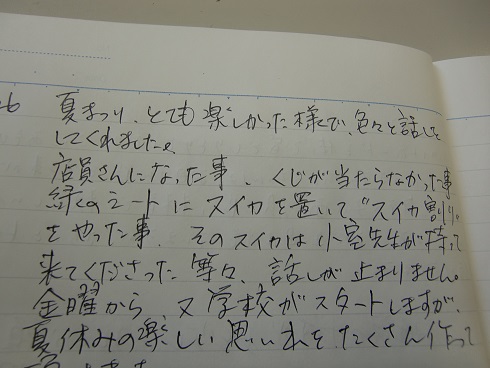 26 夏まつり、とても楽しかった様で、色々と話しを
してくれました。
店員さんになった事、くじが当たらなかった事
緑のシートにスイカを置いて"スイカ割り"
をやった事、そのスイカは小宮先生が持って
来てくださった等々、話しが止まりません。
金曜から、又学校がスタートしますが、
夏休みの楽しい思い出をたくさん作って